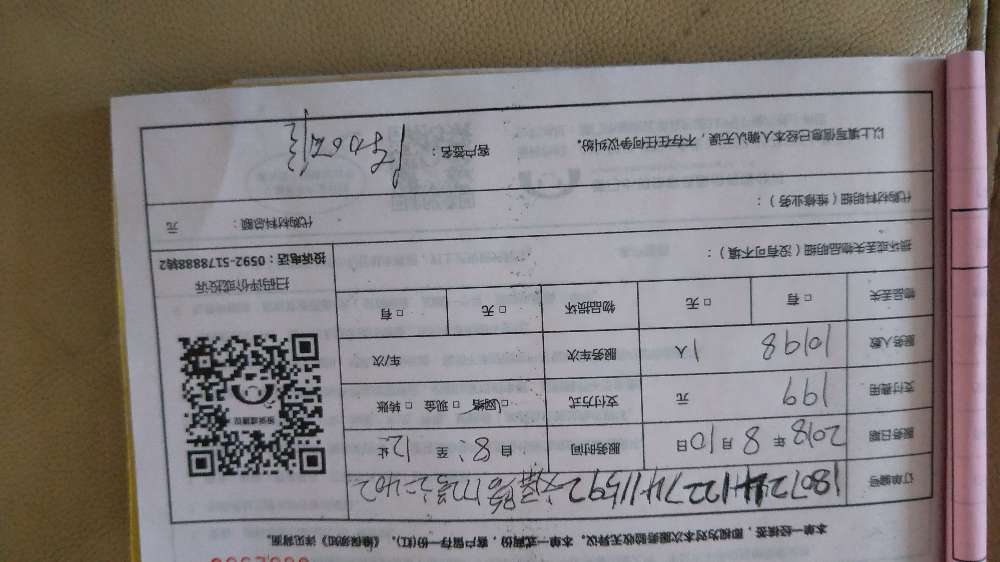 本单一经接签，即视为对本次服务验收无异议。本单一式两份，客户留存一份(红)。《确保须知》详见背面。
订单编号 1807241227411592
服务日期 2018 年 8 月 10 日 服务时间 自 8: 至 12止
支付费用 199 元 支付方式 □ 网络 □ 现金 □ 转账
服务人数 1098 1 人 服务车次 车/次
物品丢失 □ 有 □ 无 物品损坏 □ 无 □ 有
扫码评价或投诉
投诉电话：0592-5178888转2
损坏或丢失物品明细（没有可不填）：
代购材料明细（维修业务）： 代购材料总额： 元
以上填写信息已经本人确认无误，不存在任何争议纠纷。 客户签名：